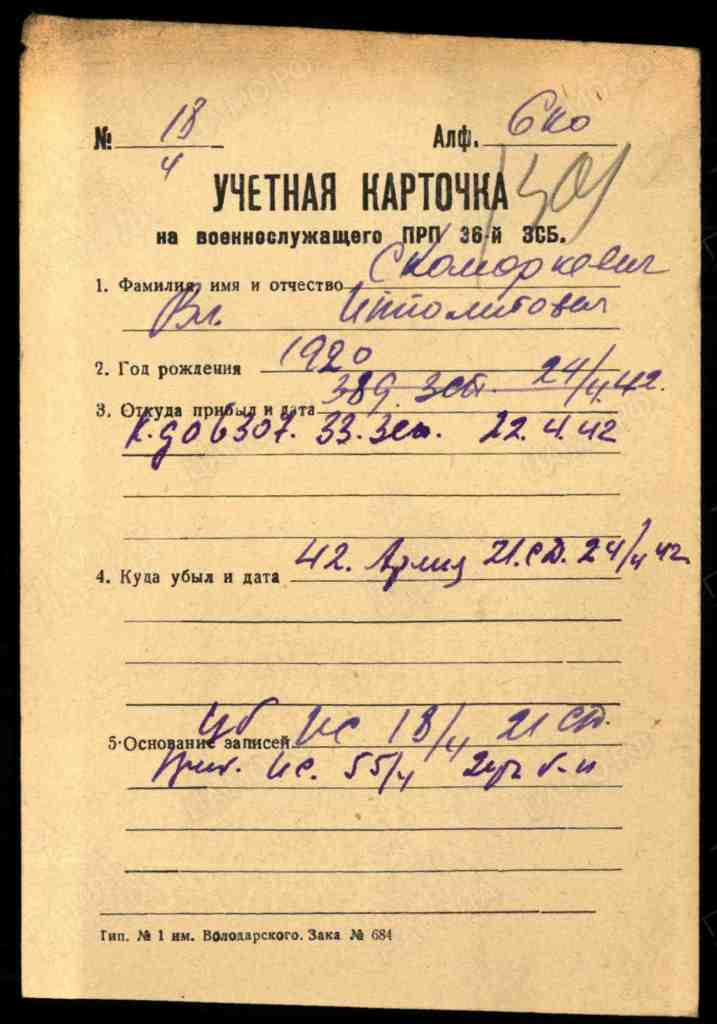 № 18/4 Алф. Ско
301
УЧЕТНАЯ КАРТОЧКА
на военнослужащего ПРП 36-й ЗСБ.
1. Фамилия, имя и отчество Скоморкевич
Вл. Ипполитович
2. Год рождения 1920
389 зсп. 24/4.42.
3. Откуда прибыл и дата
33. зсп. 22.4.42
4. Куда убыл и дата 42. Армия 21.сд. 24/4 42
5. Основание записей Уб ИС 18/4 21 сд.
Приб. ИС. 55/4
Тип. № 1 им. Володарского. Зака № 684